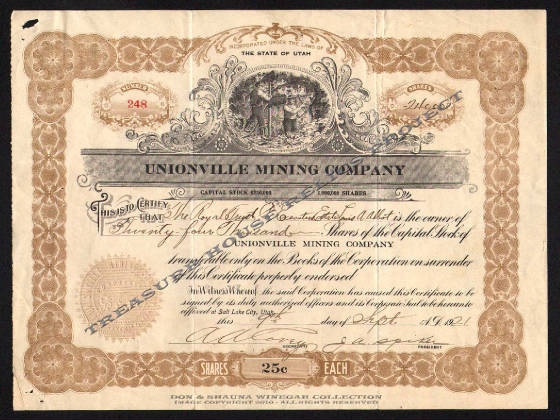 INCORPORATED UNDER THE LAWS OF
THE STATE OF UTAH
NUMBER
248
SHARES
UNIONVILLE MINING COMPANY
CAPITAL STOCK $250,000
1,000,000 SHARES
THIS IS TO CERTIFY THAT The Royal is the owner of
Twenty-four Thousand Shares of the Capital Stock of
UNIONVILLE MINING COMPANY
transferable only on the Books of the Corporation on surrender
of this Certificate properly endorsed
In Witness Whereof the said Corporation has caused this Certificate to be
signed by its duly authorized officers and its Corporate Seal to be hereunto
affixed at Salt Lake City, Utah
this day of Sept A.D. 1921
SECRETARY
PRESIDENT
SHARES 25c EACH
TREASURE HOUSE RELICS PROJECT
DON & SHAUNA WINEGAR COLLECTION
IMAGE COPYRIGHT 2010 - ALL RIGHTS RESERVED